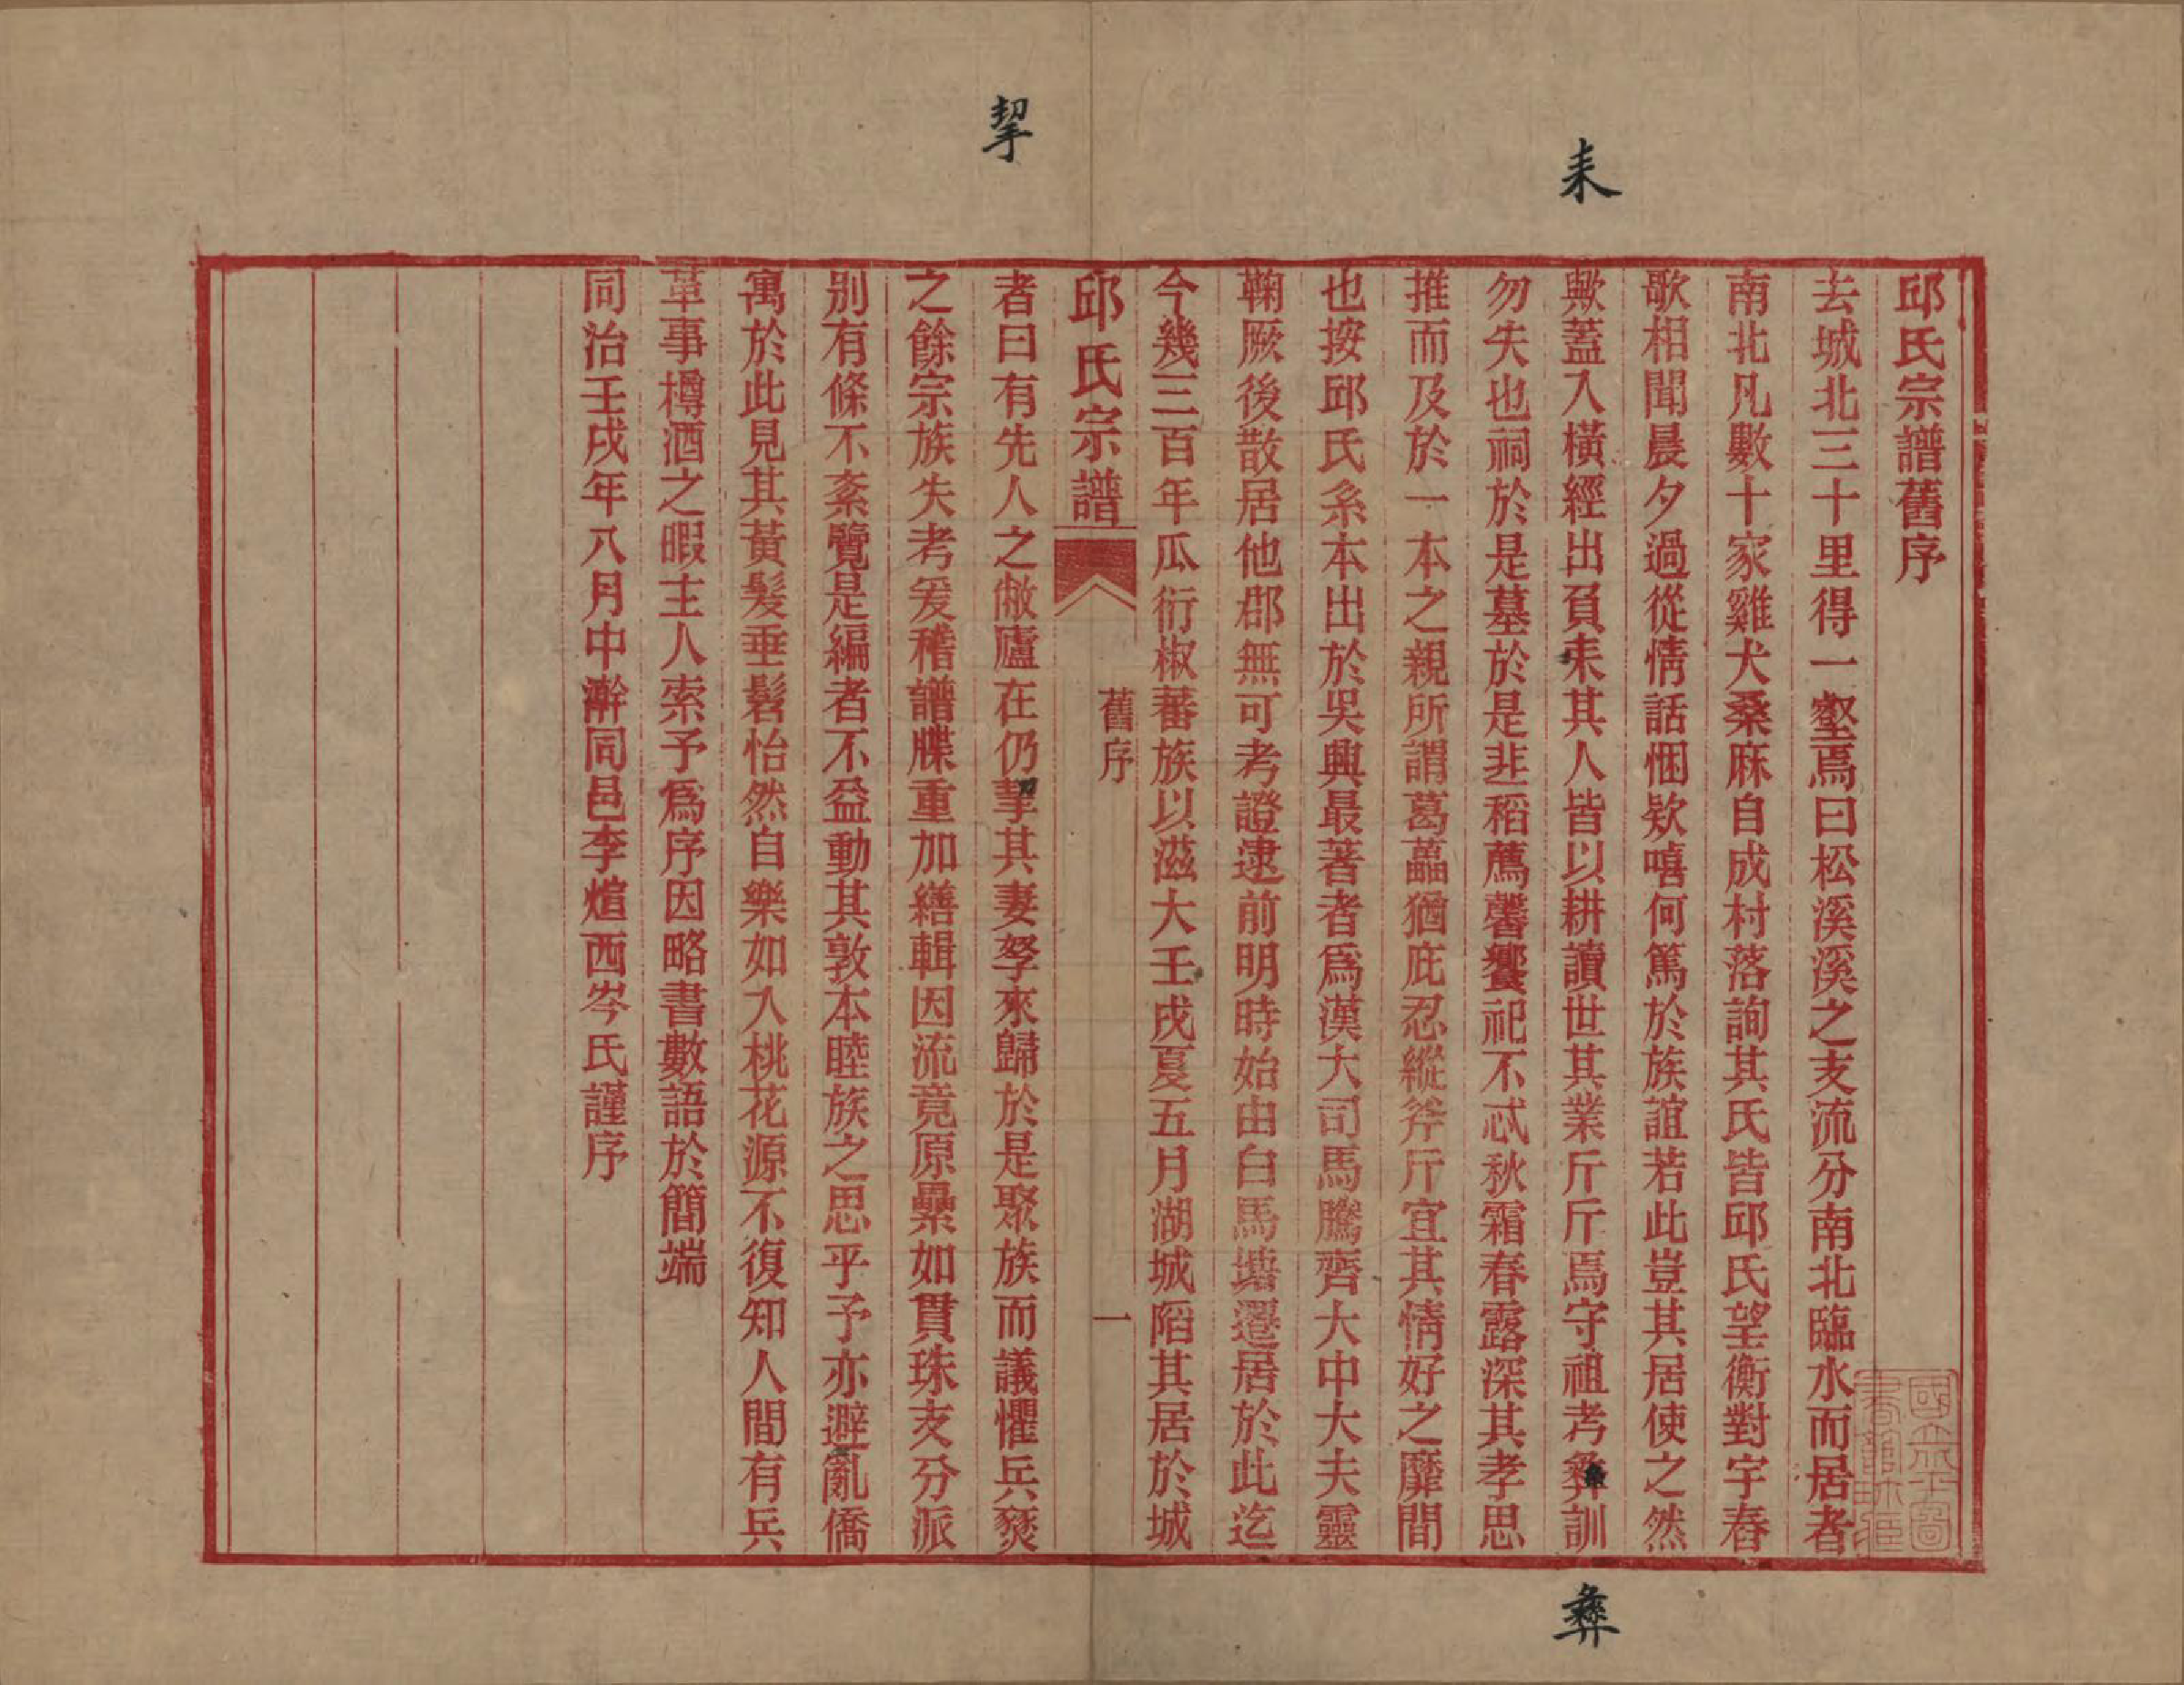 邱氏宗譜舊序
去城北三十里得一壑焉曰松溪溪之支流分南北臨水而居者
南北凡數十家雞犬桑麻自成村落詢其氏皆邱氏望衡對宇舂
歌相聞晨夕過從情話悃欵嘻何篤於族誼若此豈其居使之然
歟蓋入橫經出負耒其人皆以耕讀世其業斤斤焉守祖考彝訓
勿失也祠於是墓於是韭稻薦馨饗祀不忒秋霜春露深其孝思
推而及於一本之親所謂葛藟猶庇忍縱斧斤宜其情好之靡間
也按邱氏系本出於吳興最著者爲漢大司馬騰齊大中大夫靈
鞠厥後散居他郡無可考證逮前明時始由白馬塘遷居於此迄
今幾三百年瓜衍椒蕃族以滋大壬戌夏五月湖城陷其居於城
邱氏宗譜
舊序
一
者曰有先人之敝廬在仍挈其妻孥來歸於是聚族而議懼兵燹
之餘宗族失考爰稽譜牒重加繕輯因流竟原纍如貫珠支分派
別有條不紊覽是編者不益動其敦本睦族之思乎予亦避亂僑
寓於此見其黃髮垂髫怡然自樂如入桃花源不復知人間有兵
革事樽酒之暇主人索予爲序因略書數語於簡端
同治壬戌年八月中澣同邑李煊西岑氏謹序
挈
耒
彝